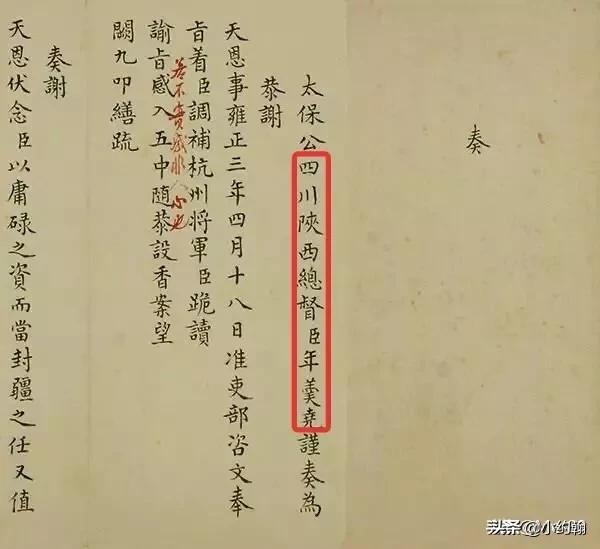 奏
太保公四川陝西總督臣年羹堯謹奏為
恭謝
天恩事雍正三年四月十八日准吏部咨文奉
旨着臣調補杭州將軍臣跪讀
若不實感非人心也
諭旨感入五中隨恭設香案望
闕九叩繕疏
奏謝
天恩伏念臣以庸碌之資而當封疆之任又值
头条@小约翰